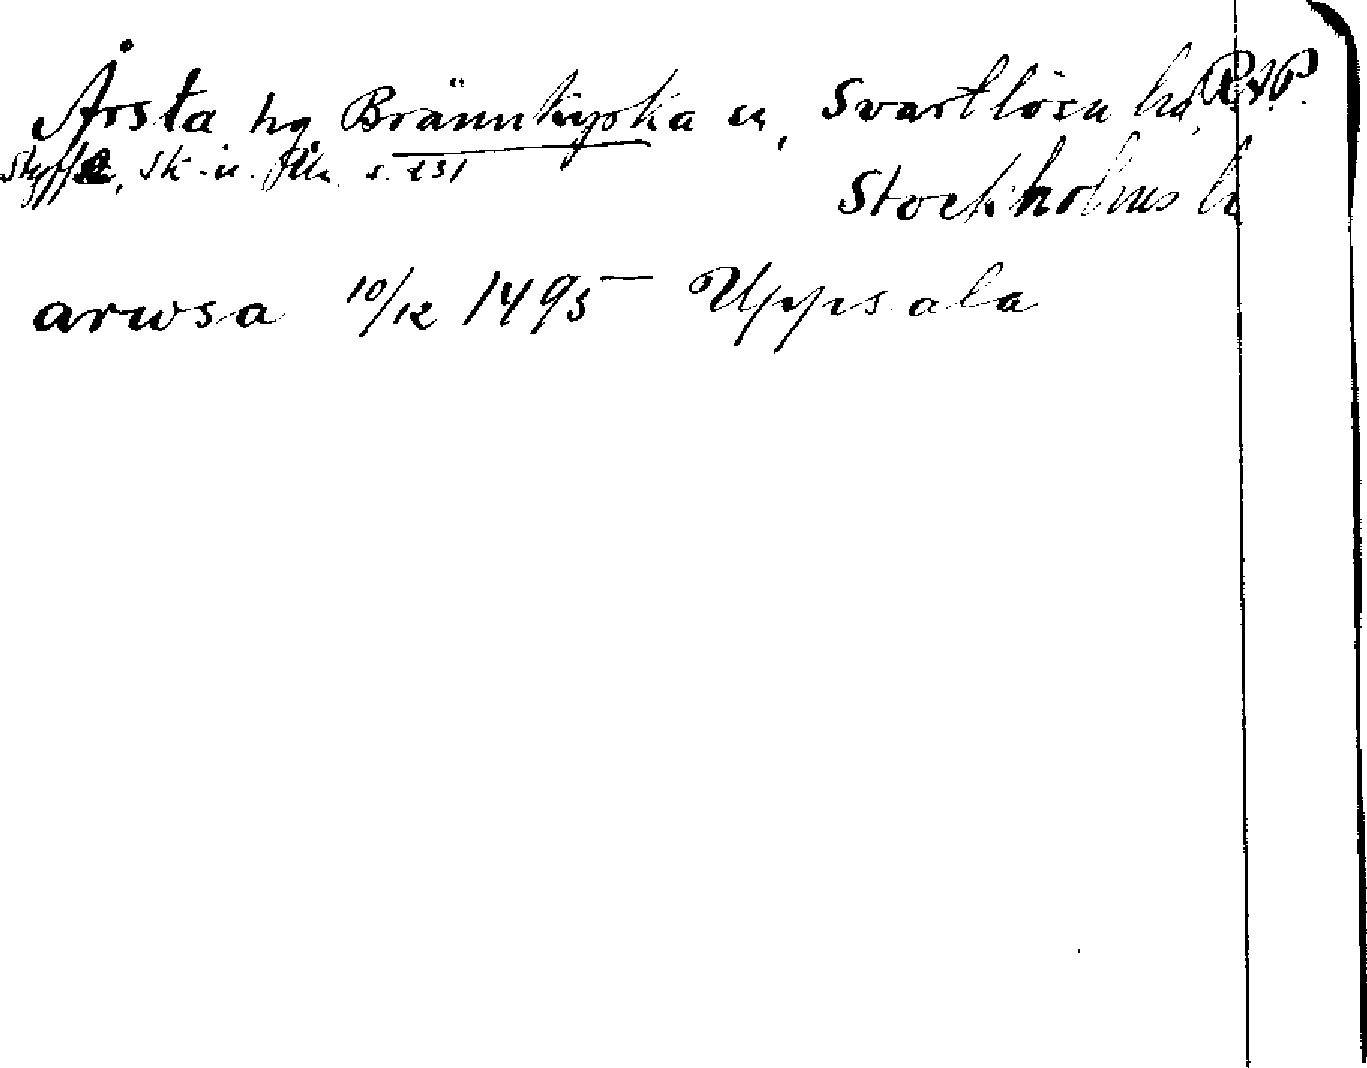 Årsta hg Brännkyrka sn, Svartlösa hd, RAP.
Styffe, Sk. u. Ut. s. 231
Stockholms l
arwsa 10/12 1495 Uppsala